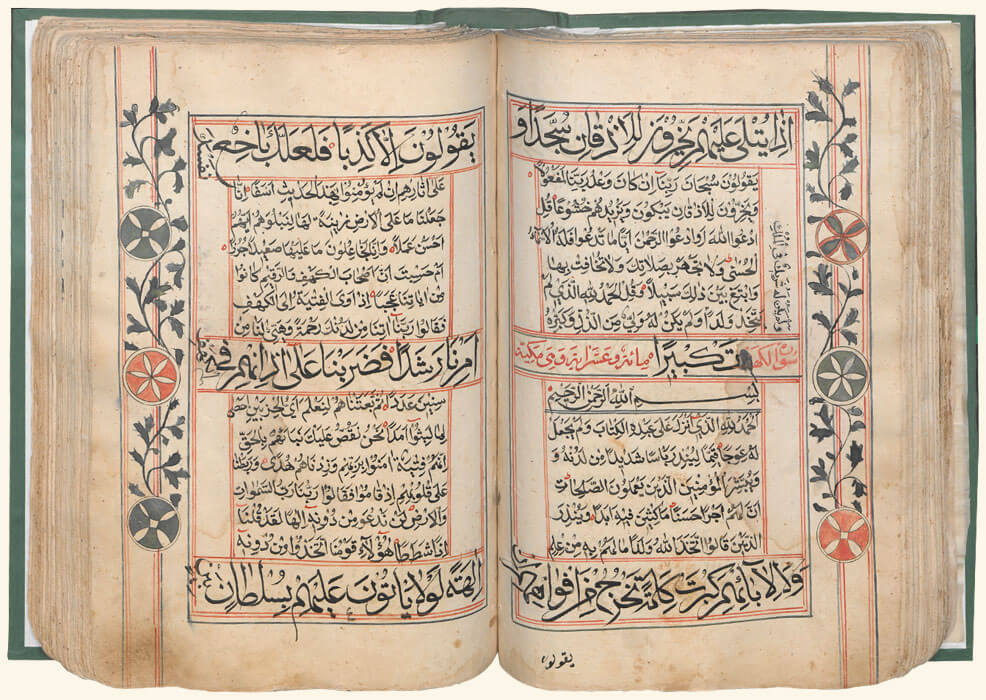 اذا يتلى عليهم يخرون للاذقان سجدا و
يقولون سبحان ربنا ان كان وعد ربنا لمفعولا
ويخرون للاذقان يبكون ويزيدهم خشوعا قل
ادعوا الله اوادعوا الرحمن ايا ما تدعوا فله الاسماء
الحسنى ولا تجهر بصلاتك ولا تخافت بها
وابتغ بين ذلك سبيلا وقل الحمد لله الذي لم
يتخذ ولدا ولم يكن له ولي من الذل وكبره
ولم يكن له شريك في الملك
سورة الكهف تكبيرا مائة وعشر اية وهي مكية
بسم الله الرحمن الرحيم
الحمد لله الذي انزل على عبده الكتاب ولم يجعل
له عوجا قيما لينذر باسا شديدا من لدنه و
يبشر المؤمنين الذين يعملون الصالحات
ان لهم اجرا حسنا ماكثين فيه ابدا وينذر
الذين قالوا اتخذ الله ولدا ما لهم به من علم
ولا لابائهم كبرت كلمة تخرج من افواههم
يقولون
يقولون الا كذبا فلعلك باخع نفسك
على اثارهم ان لم يؤمنوا بهذا الحديث اسفا انا
جعلنا ما على الارض زينة لها لنبلوهم ايهم
احسن عملا وانا لجاعلون ما عليها صعيدا جرزا
ام حسبت ان اصحاب الكهف والرقيم كانوا
من اياتنا عجبا اذ اوى الفتية الى الكهف
فقالوا ربنا اتنا من لدنك رحمة وهيئ لنا من
امرنا رشدا فضربنا على اذانهم في الكهف
سنين عددا ثم بعثناهم لنعلم اي الحزبين احصى
لما لبثوا امدا نحن نقص عليك نباهم بالحق
انهم فتية امنوا بربهم وزدناهم هدى وربطنا
على قلوبهم اذ قاموا فقالوا ربنا رب السموات
والارض لن ندعو من دونه الها لقد قلنا
اذا شططا هؤلاء قومنا اتخذوا من دونه
الهة لولا ياتون عليهم بسلطان